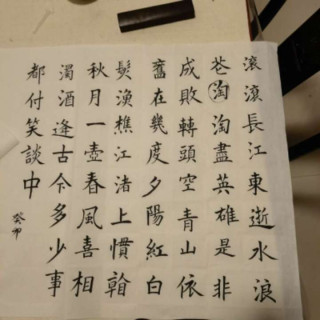 滾滾長江東逝水浪
花淘淘盡英雄是非
成敗轉頭空青山依
舊在幾度夕陽紅白
髮漁樵江渚上慣
秋月一壺春風喜相
濁酒逢古今多少事
都付笑談中
癸卯